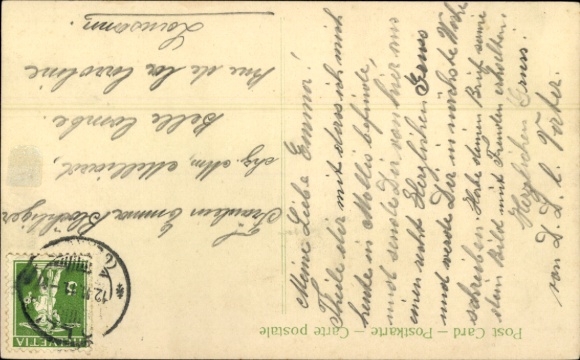 Post Card – Postkarte – Carte postale
Meine Liebe Emma!
Theile dir mit dass ich mich
heute in Mollis befinde,
und sende Dir von hier aus
einen recht Herzlichen Gruss
und werde Dir in nächste Woche
schreiben. Habe deinen Brief sowie
dein Bild mit Freuden erhalten.
Herzlichen Gruss.
von D. L. l. Vater.
Fräulein Emma Blöchlinger
chz. Mm.
Belle Combe.
Rue de la
Lausanne.
HELVETIA
5
12